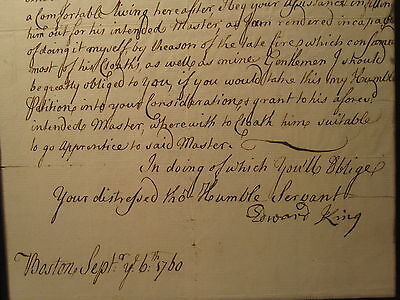 a Comfortable living hereafter I beg your Assistance in fitting
him out for his intended Master, as I am rendered incapable
of doing it myself by Reason of the late fire, which consumed
most of his Cloaths, as well as mine. Gentlemen I should
be greatly obliged to You, if you would take this my Humble
Petition into your Consideration, & grant to his afores.d
intended Master, wherewith to Cloath him suitable
to go Apprentice to said Master
In doing of which You'll Oblige
Your distressed tho' Humble Servant
Edward King
Boston, Sept.r y.e 6.th 1760